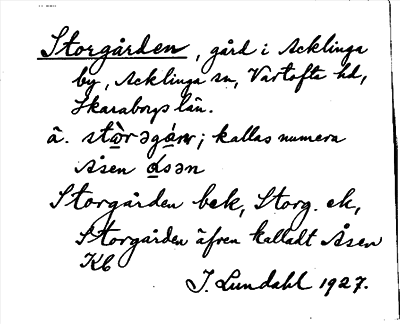 Storgården, gård i Acklinga
by, Acklinga sn, Vartofta hd,
Skaraborgs län.
ä. stòrəgá; kallas numera
Åsen ásən
Storgården bek, Storg. ek,
Storgården äfven kalladt Åsen
Kb
J. Lundahl 1927.